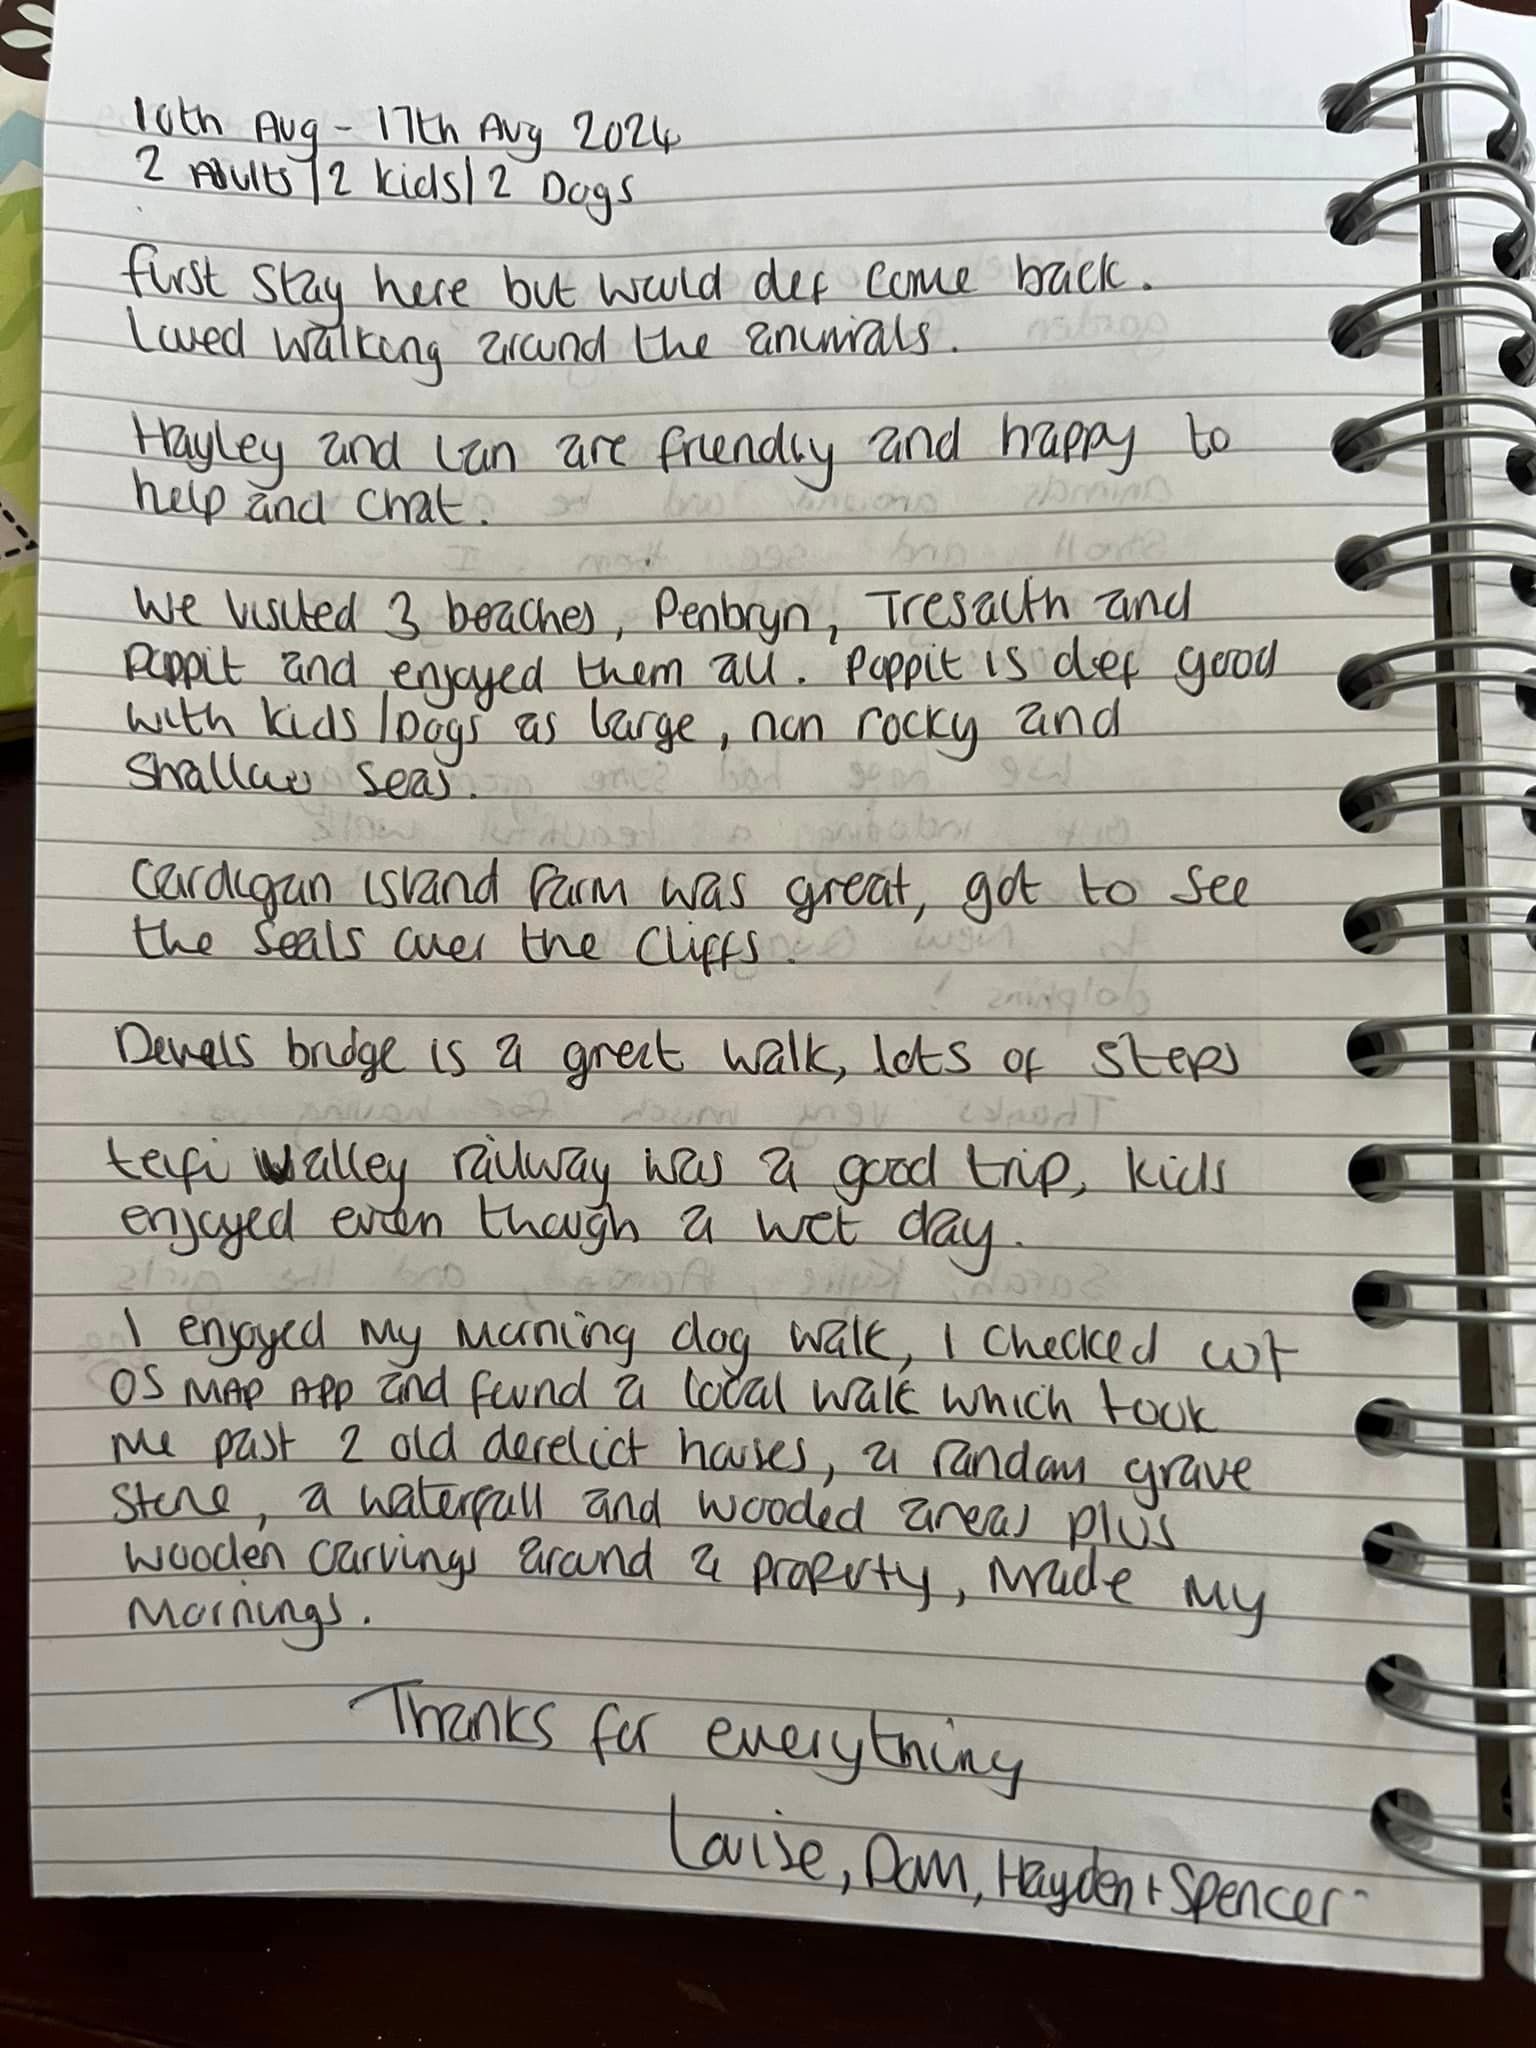 10th Aug - 17th Aug 2024
2 Adults / 2 kids / 2 Dogs
first stay here but would def come back.
Loved walking around the animals.
Hayley and Ian are friendly and happy to
help and chat.
We visited 3 beaches, Penbryn, Tresaith and
Poppit and enjoyed them all. Poppit is def good
with kids / Dogs as large, non rocky and
shallow seas.
Cardigan island Farm was great, got to see
the seals over the cliffs.
Devels bridge is a great walk, lots of steps
teifi valley railway was a good trip, kids
enjoyed even though a wet day.
I enjoyed my morning dog walk, I checked out
OS MAP APP and found a local walk which took
me past 2 old derelict houses, a random grave
stone, a waterfall and wooded areas plus
wooden carvings around a property, made my
mornings.
Thanks for everything
Louise, Dom, Hayden + Spencer